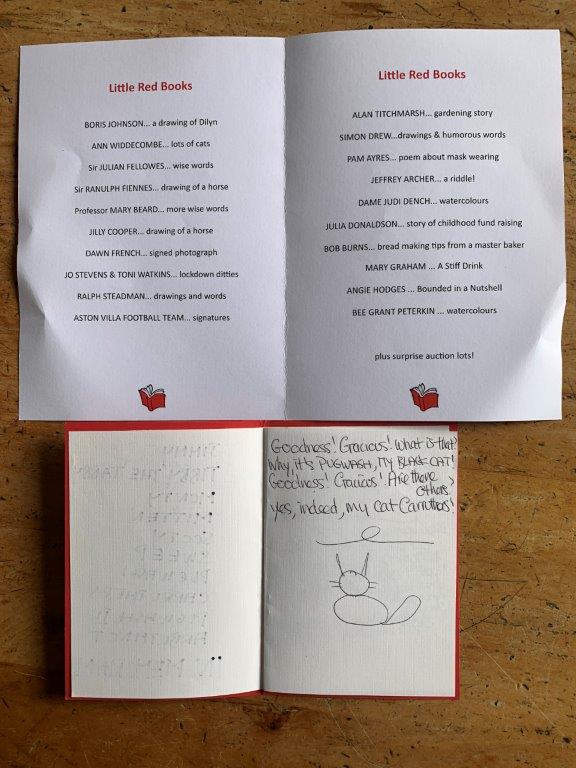 Little Red Books
BORIS JOHNSON... a drawing of Dilyn
ANN WIDDECOMBE... lots of cats
Sir JULIAN FELLOWES... wise words
Sir RANULPH FIENNES... drawing of a horse
Professor MARY BEARD... more wise words
JILLY COOPER... drawing of a horse
DAWN FRENCH... signed photograph
JO STEVENS & TONI WATKINS... lockdown ditties
RALPH STEADMAN... drawings and words
ASTON VILLA FOOTBALL TEAM... signatures
Little Red Books
ALAN TITCHMARSH... gardening story
SIMON DREW...drawings & humorous words
PAM AYRES... poem about mask wearing
JEFFREY ARCHER... a riddle!
DAME JUDI DENCH... watercolours
JULIA DONALDSON... story of childhood fund raising
BOB BURNS... bread making tips from a master baker
MARY GRAHAM ... A Stiff Drink
ANGIE HODGES ... Bounded in a Nutshell
BEE GRANT PETERKIN ... watercolours
plus surprise auction lots!
Goodness! Gracious! What is that?
Why, it's PUGWASH, MY BLACK CAT!
Goodness! Gracious! Are there
others?
Yes, indeed, my cat Carruthers!